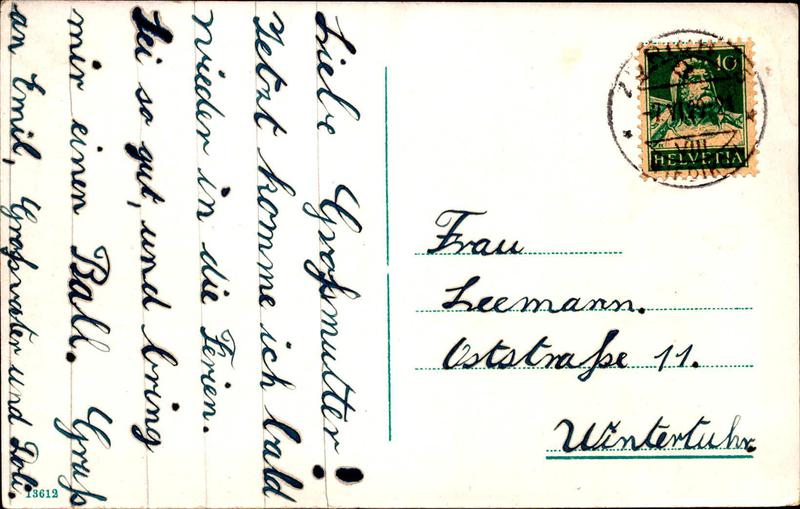 Liebe Großmutter!
Jetzt komme ich bald
wieder in die Ferien.
Sei so gut, und bring
mir einen Ball. Gruß
an Emil, Großvater und Doli.
13612
10
HELVETIA
VIII
Frau
Leemann.
Oststraße 11.
Wintertuhr.